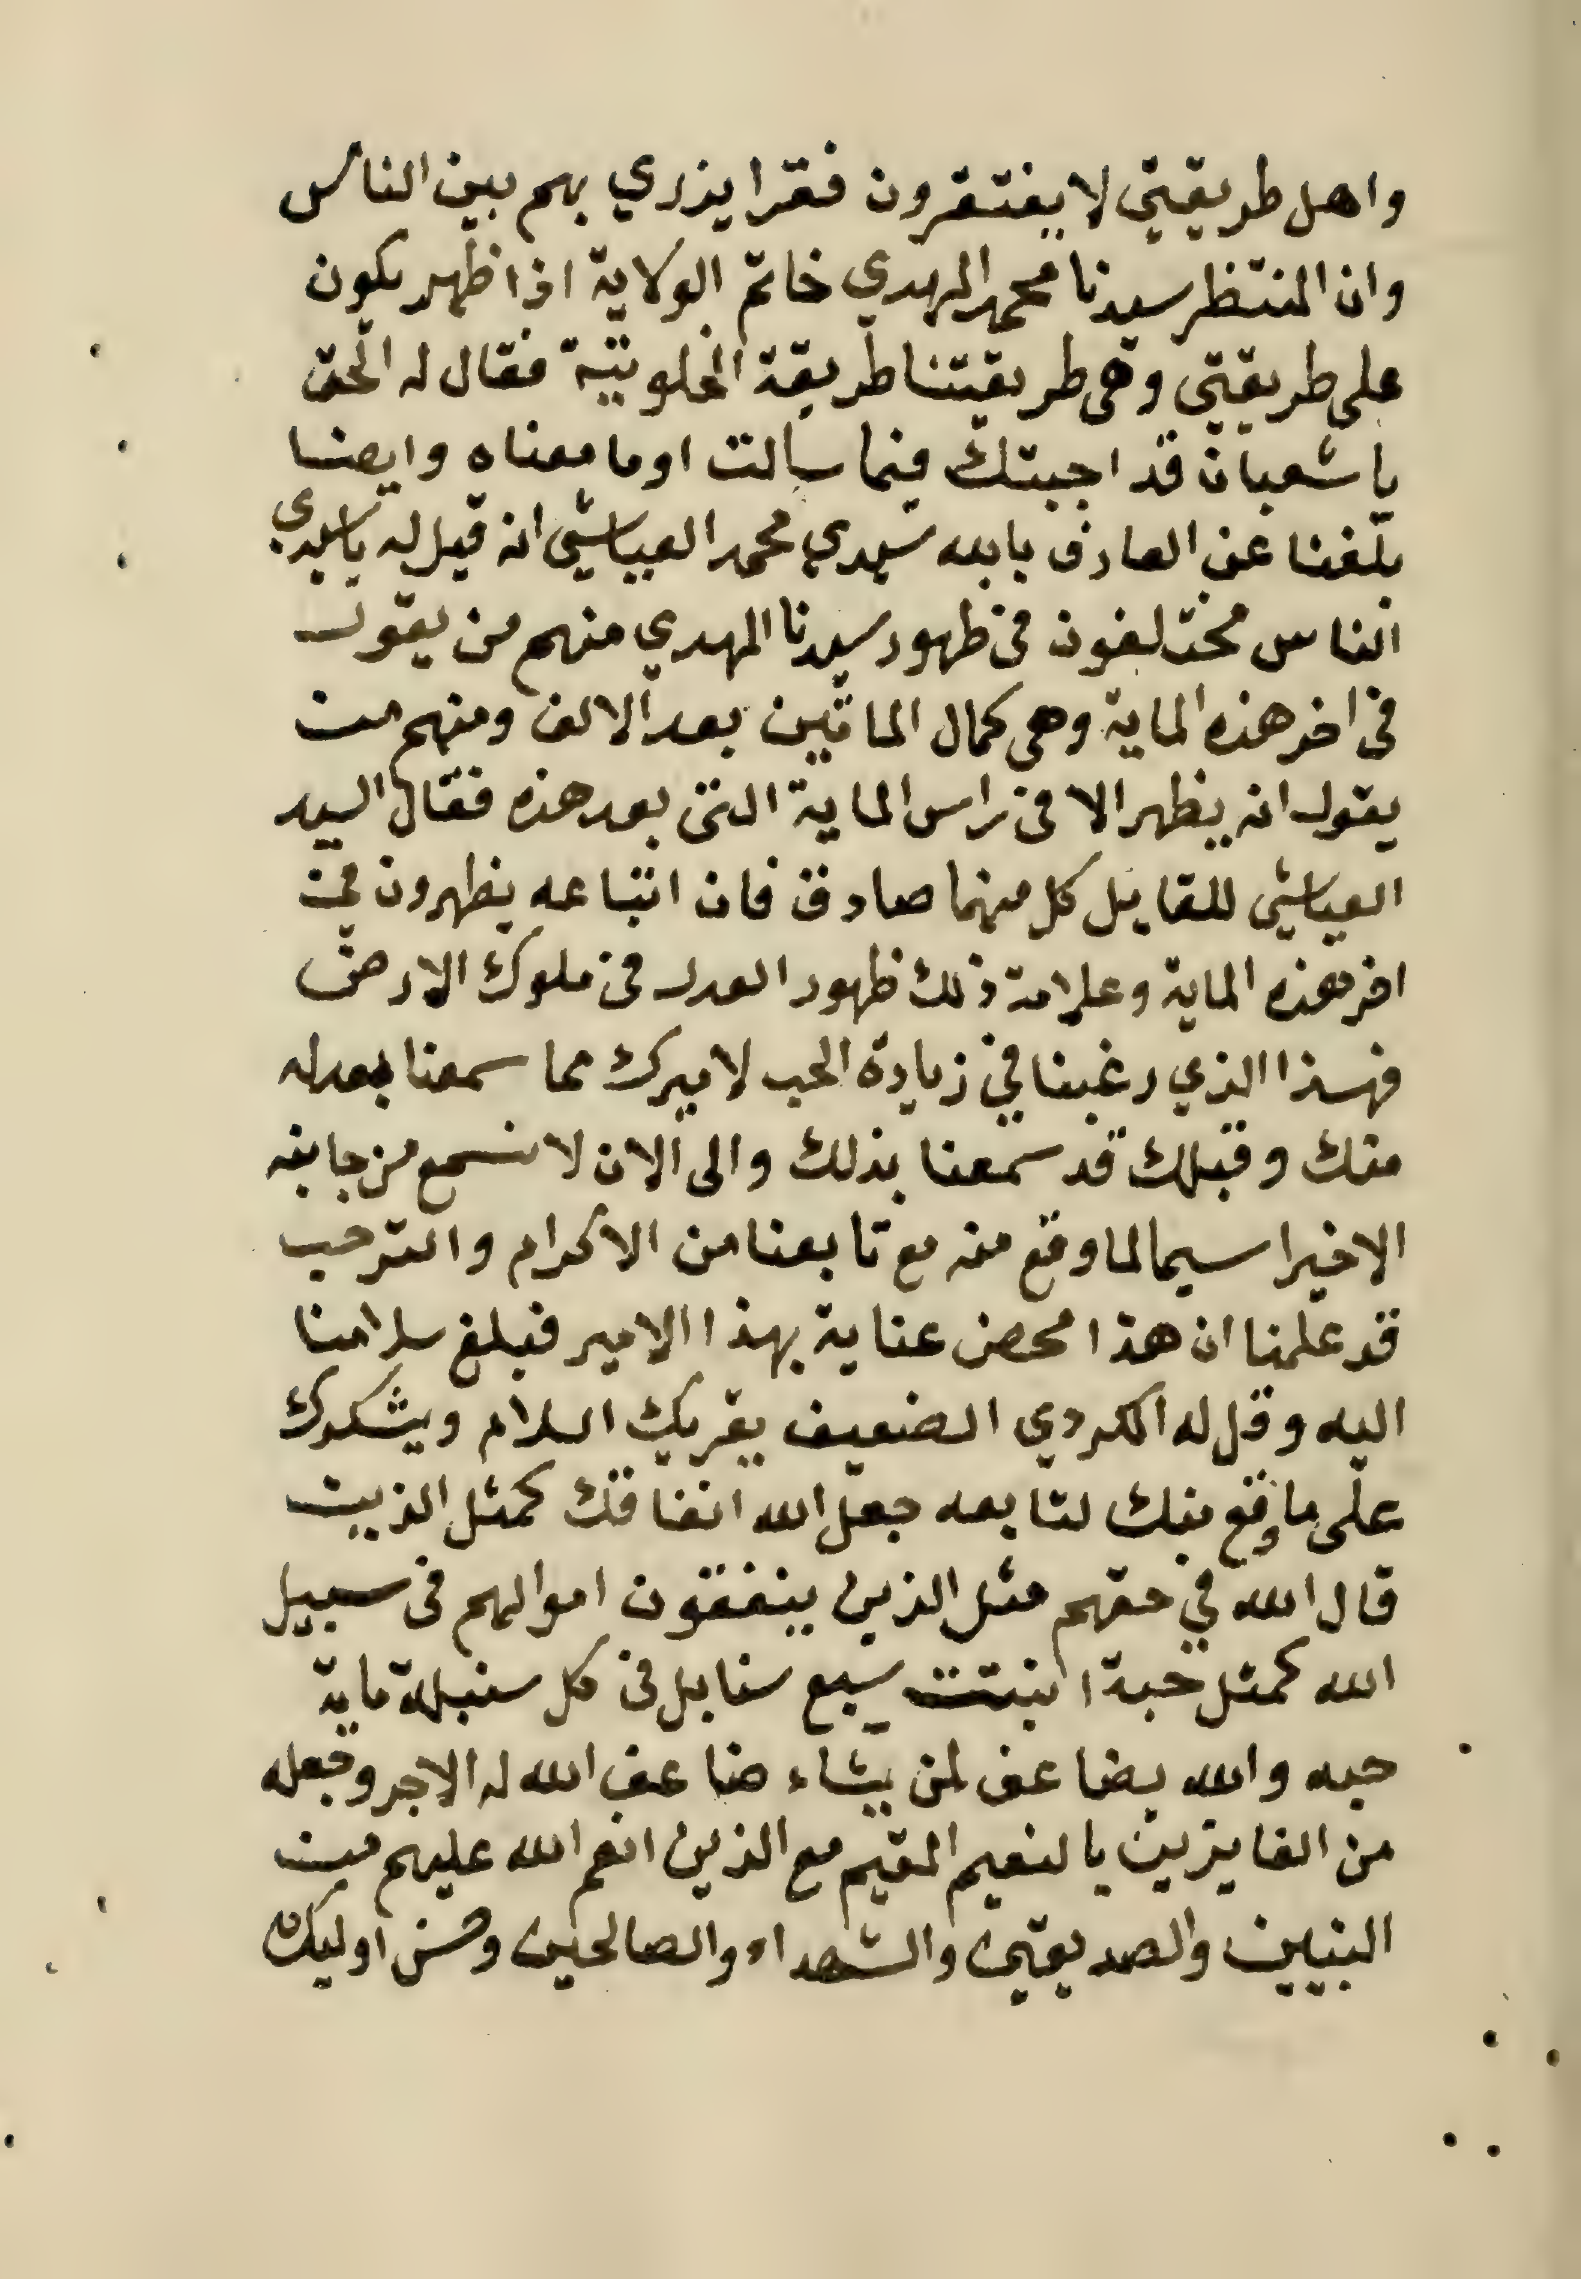 واهل طريقتي لا يفتقرون فقرا يزري بهم بين الناس
وان المنتظر سيدنا محمد المهدي خاتم الولاية اذا ظهر يكون
على طريقتي وهى طريقتنا طريقة الخلوتية فقال له الحق
يا شعبان قد اجبتك فيما سالت اوما معناه وايضا
بلغنا عن العارف بالله سيدي محمد العياشي انه قيل له ياسيدي
الناس مختلفون فى ظهور سيدنا المهدي منهم من يقول
فى اخر هذه الماية وهى كمال الماتين بعد الالف ومنهم من
يقول انه يظهر الا فى راس الماية التى بعد هذه فقال السيد
العياشي للقايل كل منهما صادق فان اتباعه يظهرون في
اخر هذه الماية وعلامة ذلك ظهور العدل فى ملوك الارض
فهذا الذي رغبنا في زيادة الحب لاميرك مما سمعنا بعدله
منك وقبلك قد سمعنا بذلك والى الان لا نسمع من جانبه
الا خيرا سيما لما وقع منه مع تابعنا من الاكرام والترحب
قد علمنا ان هذا محض عناية بهذا الامير فبلغ سلامنا
اليه وقل له الكردي الضعيف يقريك السلام ويشكرك
على ما وقع منك لتابعه جعل الله انفاقك كمثل الذين
قال الله في حقهم مثل الذين ينفقون اموالهم فى سبيل
الله كمثل حبة انبتت سبع سنابل فى كل سنبلة ماية
حبه والله يضاعف لمن يشاء ضاعف الله له الاجر وجعله
من الفايزين بالنعيم المقيم مع الذين انعم الله عليهم من
النبيين والصديقين والشهداء والصالحين وحسن اوليك